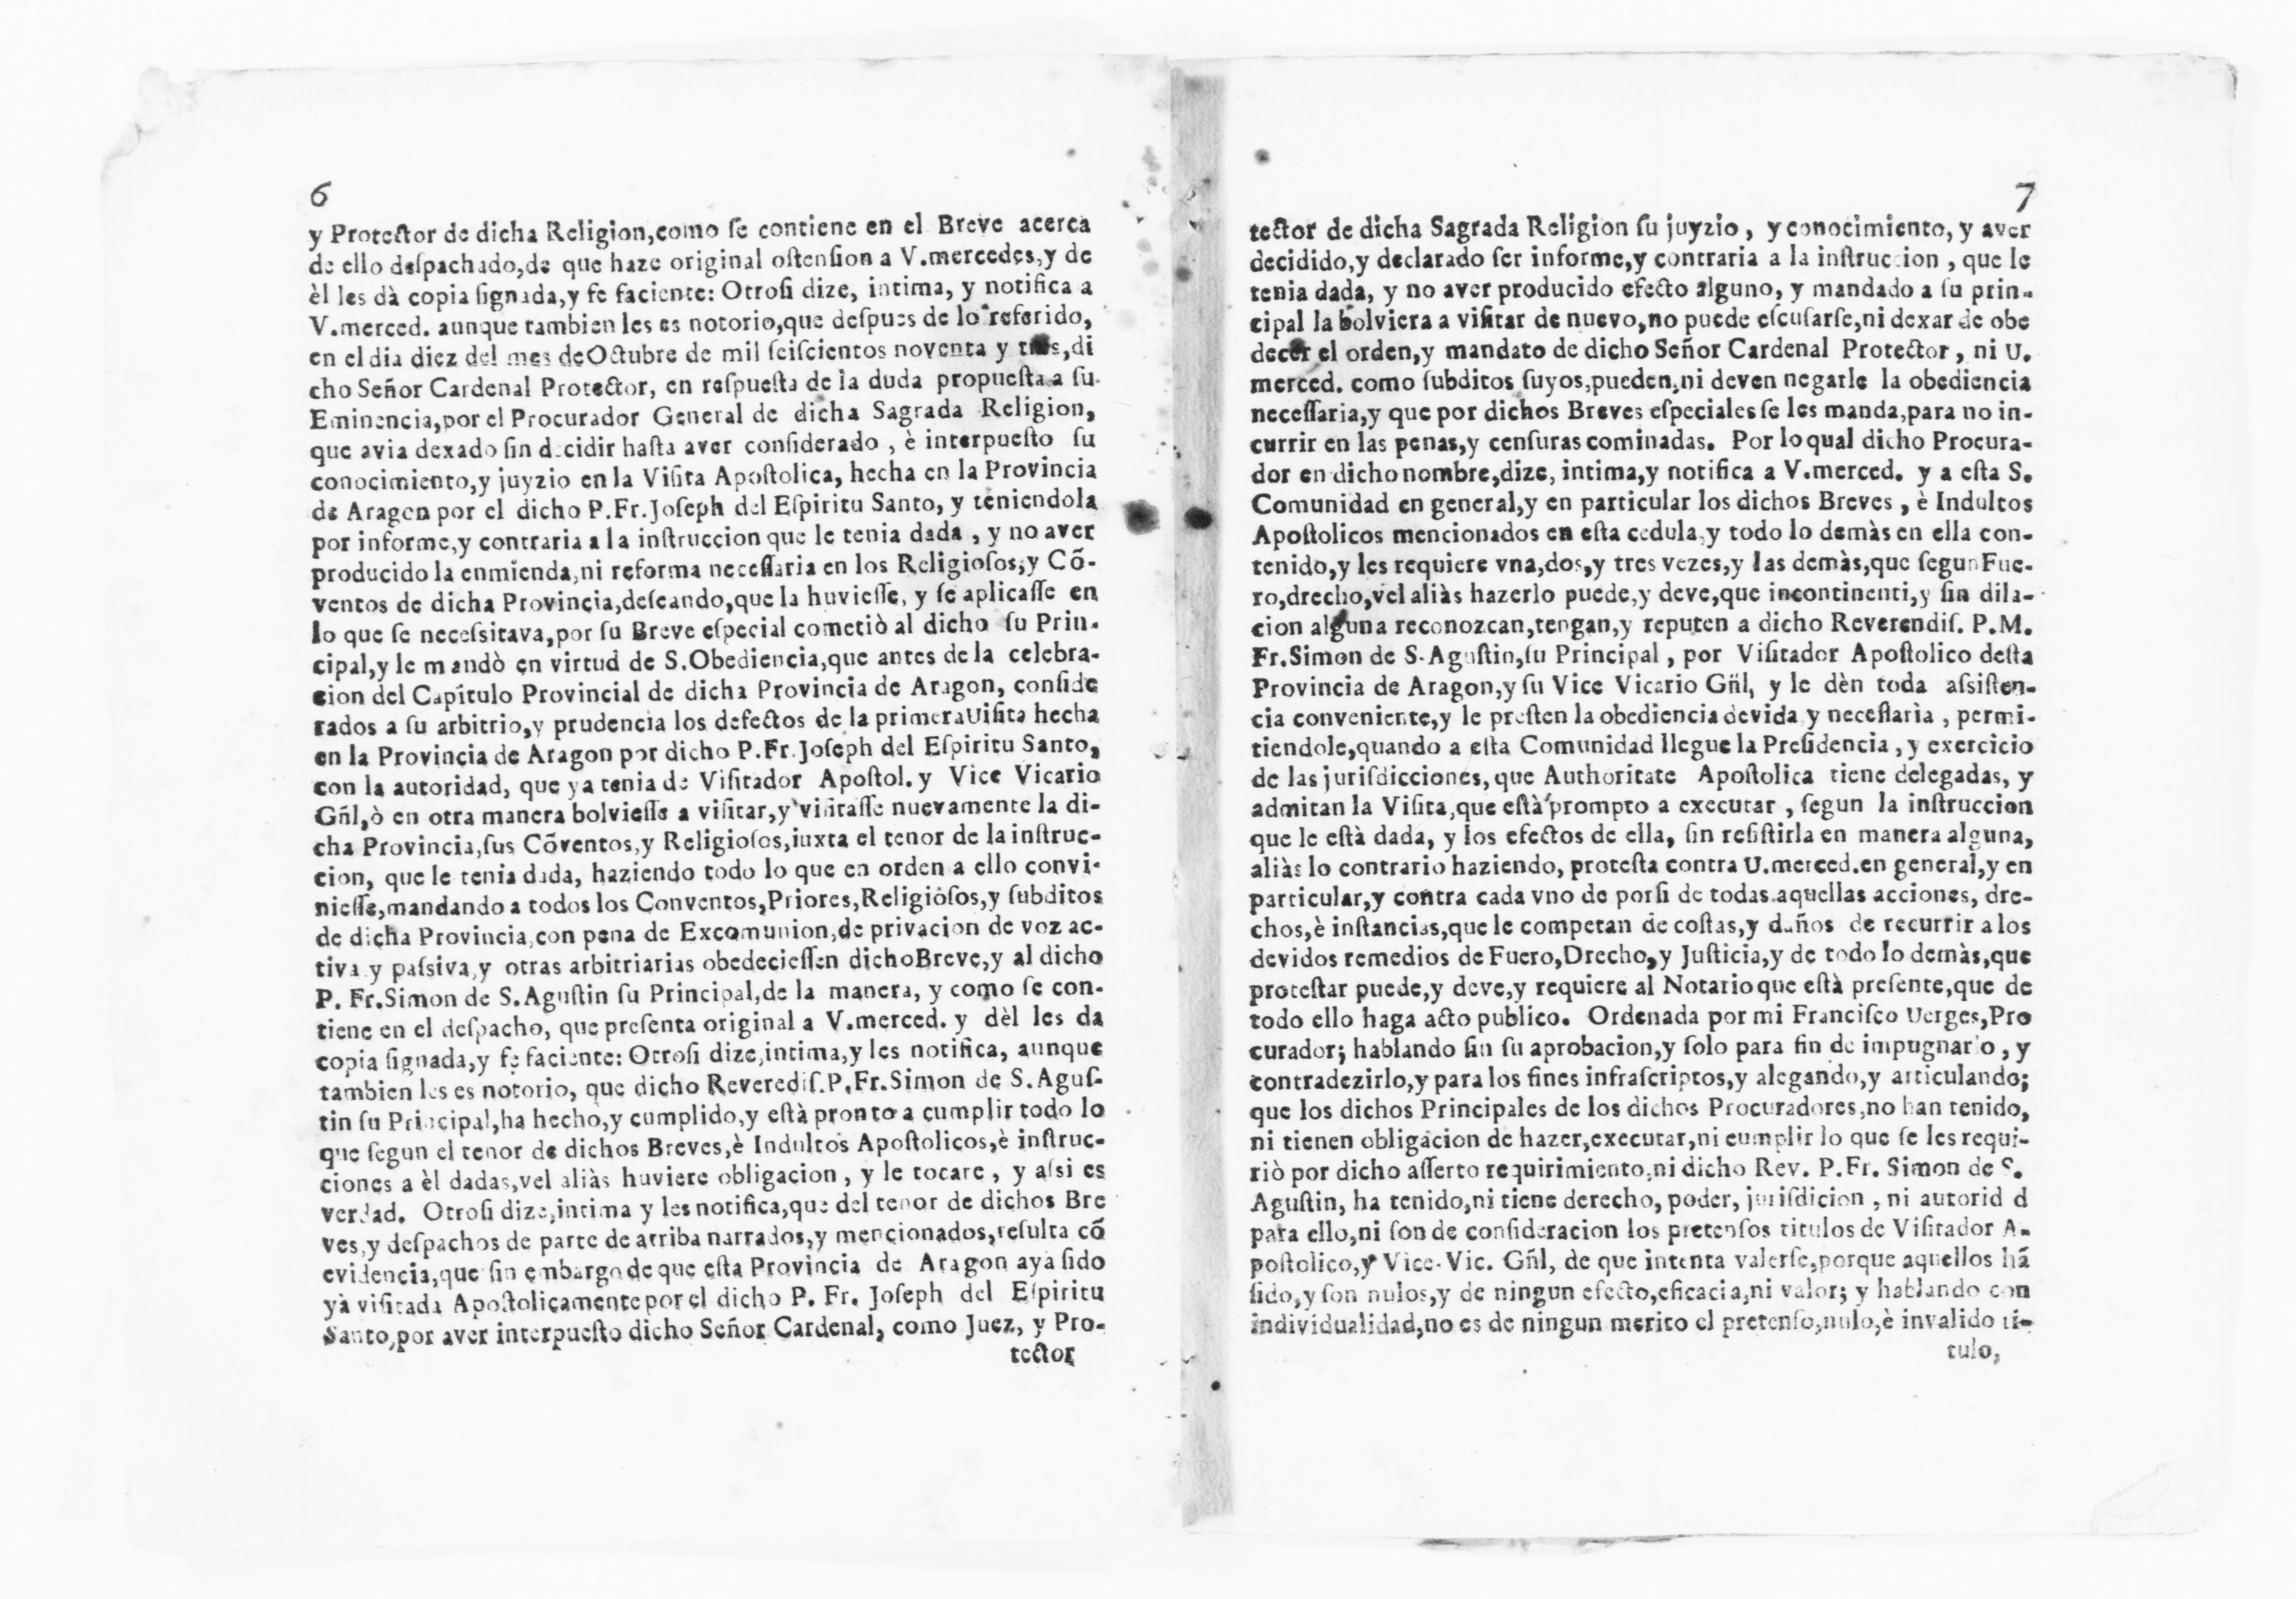 6
y Protector de dicha Religion,como ſe contiene en el Breve acerca
de ello deſpachado,de que haze original oſtenſion a V.mercedes,y de
èl les dà copia ſignada,y fe faciente: Otroſi dize, intima, y notifica a
V.merced. aunque tambien les es notorio,que deſpues de lo referido,
en el dia diez del mes de Octubre de mil ſeiſcientos noventa y tres,di
cho Señor Cardenal Protector, en reſpueſta de la duda propueſta a ſu
Eminencia,por el Procurador General de dicha Sagrada Religion,
que avia dexado ſin decidir haſta aver conſiderado , è interpueſto ſu
conocimiento,y juyzio en la Viſita Apoſtolica, hecha en la Provincia
de Aragon por el dicho P.Fr.Joſeph del Eſpiritu Santo, y teniendola
por informe,y contraria a la inſtruccion que le tenia dada , y no aver
producido la enmienda,ni reforma neceſſaria en los Religioſos,y Cõ-
ventos de dicha Provincia,deſeando,que la huvieſſe, y ſe aplicaſſe en
lo que ſe neceſsitava,por ſu Breve eſpecial cometiò al dicho ſu Prin-
cipal,y le mandò en virtud de S.Obediencia,que antes de la celebra-
cion del Capitulo Provincial de dicha Provincia de Aragon, conſide
rados a ſu arbitrio,y prudencia los defectos de la primera Uiſita hecha
en la Provincia de Aragon por dicho P.Fr.Joſeph del Eſpiritu Santo,
con la autoridad, que ya tenia de Viſitador Apoſtol. y Vice Vicario
Gñl,ò en otra manera bolvieſſe a viſitar,y viſitaſſe nuevamente la di-
cha Provincia,ſus Cõventos,y Religioſos,iuxta el tenor de la inſtruc-
cion, que le tenia dada, haziendo todo lo que en orden a ello convi-
nieſſe,mandando a todos los Conventos,Priores,Religioſos,y ſubditos
de dicha Provincia,con pena de Excomunion,de privacion de voz ac-
tiva y paſsiva,y otras arbitriarias obedecieſſen dicho Breve,y al dicho
P. Fr.Simon de S.Aguſtin ſu Principal,de la manera, y como ſe con-
tiene en el deſpacho, que preſenta original a V.merced. y dèl les da
copia ſignada,y fe faciente: Otroſi dize,intima,y les notifica, aunque
tambien les es notorio, que dicho Reverediſ.P.Fr.Simon de S.Aguſ-
tin ſu Principal,ha hecho,y cumplido,y eſtà pronto a cumplir todo lo
que ſegun el tenor de dichos Breves,è Indultos Apoſtolicos,è inſtruc-
ciones a èl dadas,vel aliàs huviere obligacion , y le tocare , y aſsi es
verdad. Otroſi dize,intima y les notifica,que del tenor de dichos Bre
ves,y deſpachos de parte de arriba narrados,y mencionados,reſulta cõ
evidencia,que ſin embargo de que eſta Provincia de Aragon aya ſido
yà viſitada Apoſtolicamente por el dicho P. Fr. Joſeph del Eſpiritu
Santo,por aver interpueſto dicho Señor Cardenal, como Juez, y Pro-
tector
7
tector de dicha Sagrada Religion ſu juyzio , y conocimiento, y aver
decidido,y declarado ſer informe,y contraria a la inſtruccion , que le
tenia dada, y no aver producido efecto alguno, y mandado a ſu prin-
cipal la bolviera a viſitar de nuevo,no puede eſcuſarſe,ni dexar de obe
decer el orden,y mandato de dicho Señor Cardenal Protector , ni U.
merced. como ſubditos ſuyos,pueden,ni deven negarle la obediencia
neceſſaria,y que por dichos Breves eſpeciales ſe les manda,para no in-
currir en las penas,y cenſuras cominadas. Por lo qual dicho Procura-
dor en dicho nombre,dize, intima,y notifica a V.merced. y a eſta S.
Comunidad en general,y en particular los dichos Breves , è Indultos
Apoſtolicos mencionados en eſta cedula,y todo lo demàs en ella con-
tenido,y les requiere vna,dos,y tres vezes,y las demàs,que ſegun Fue-
ro,drecho,vel aliàs hazerlo puede,y deve,que incontinenti,y ſin dila-
cion alguna reconozcan,tengan,y reputen a dicho Reverendiſ. P.M.
Fr.Simon de S.Aguſtin,ſu Principal , por Viſitador Apoſtolico deſta
Provincia de Aragon,y ſu Vice Vicario Gñl, y le dèn toda aſsiſten-
cia conveniente,y le preſten la obediencia devida y neceſſaria , permi-
tiendole,quando a eſta Comunidad llegue la Preſidencia , y exercicio
de las juriſdicciones, que Authoritate Apoſtolica tiene delegadas, y
admitan la Viſita,que eſtà prompto a executar , ſegun la inſtruccion
que le eſtà dada, y los efectos de ella, ſin reſiſtirla en manera alguna,
aliàs lo contrario haziendo, proteſta contra U.merced.en general,y en
particular,y contra cada vno de porſi de todas aquellas acciones, dre-
chos,è inſtancias,que le competan de coſtas,y daños de recurrir a los
devidos remedios de Fuero,Drecho,y Juſticia,y de todo lo demàs,que
proteſtar puede,y deve,y requiere al Notario que eſtà preſente,que de
todo ello haga acto publico. Ordenada por mi Franciſco Uerges,Pro
curador; hablando ſin ſu aprobacion,y ſolo para fin de impugnarlo , y
contradezirlo,y para los fines infraſcriptos,y alegando,y articulando;
que los dichos Principales de los dichos Procuradores,no han tenido,
ni tienen obligacion de hazer,executar,ni cumplir lo que ſe les requi-
riò por dicho aſſerto requirimiento,ni dicho Rev. P.Fr. Simon de S.
Aguſtin, ha tenido,ni tiene derecho, poder, juriſdicion , ni autorid d
para ello,ni ſon de conſideracion los pretenſos titulos de Viſitador A-
poſtolico,y Vice-Vic. Gñl, de que intenta valerſe,porque aquellos hã
ſido,y ſon nulos,y de ningun efecto,eficacia,ni valor; y hablando con
individualidad,no es de ningun merito el pretenſo,nulo,è invalido ti-
tulo,